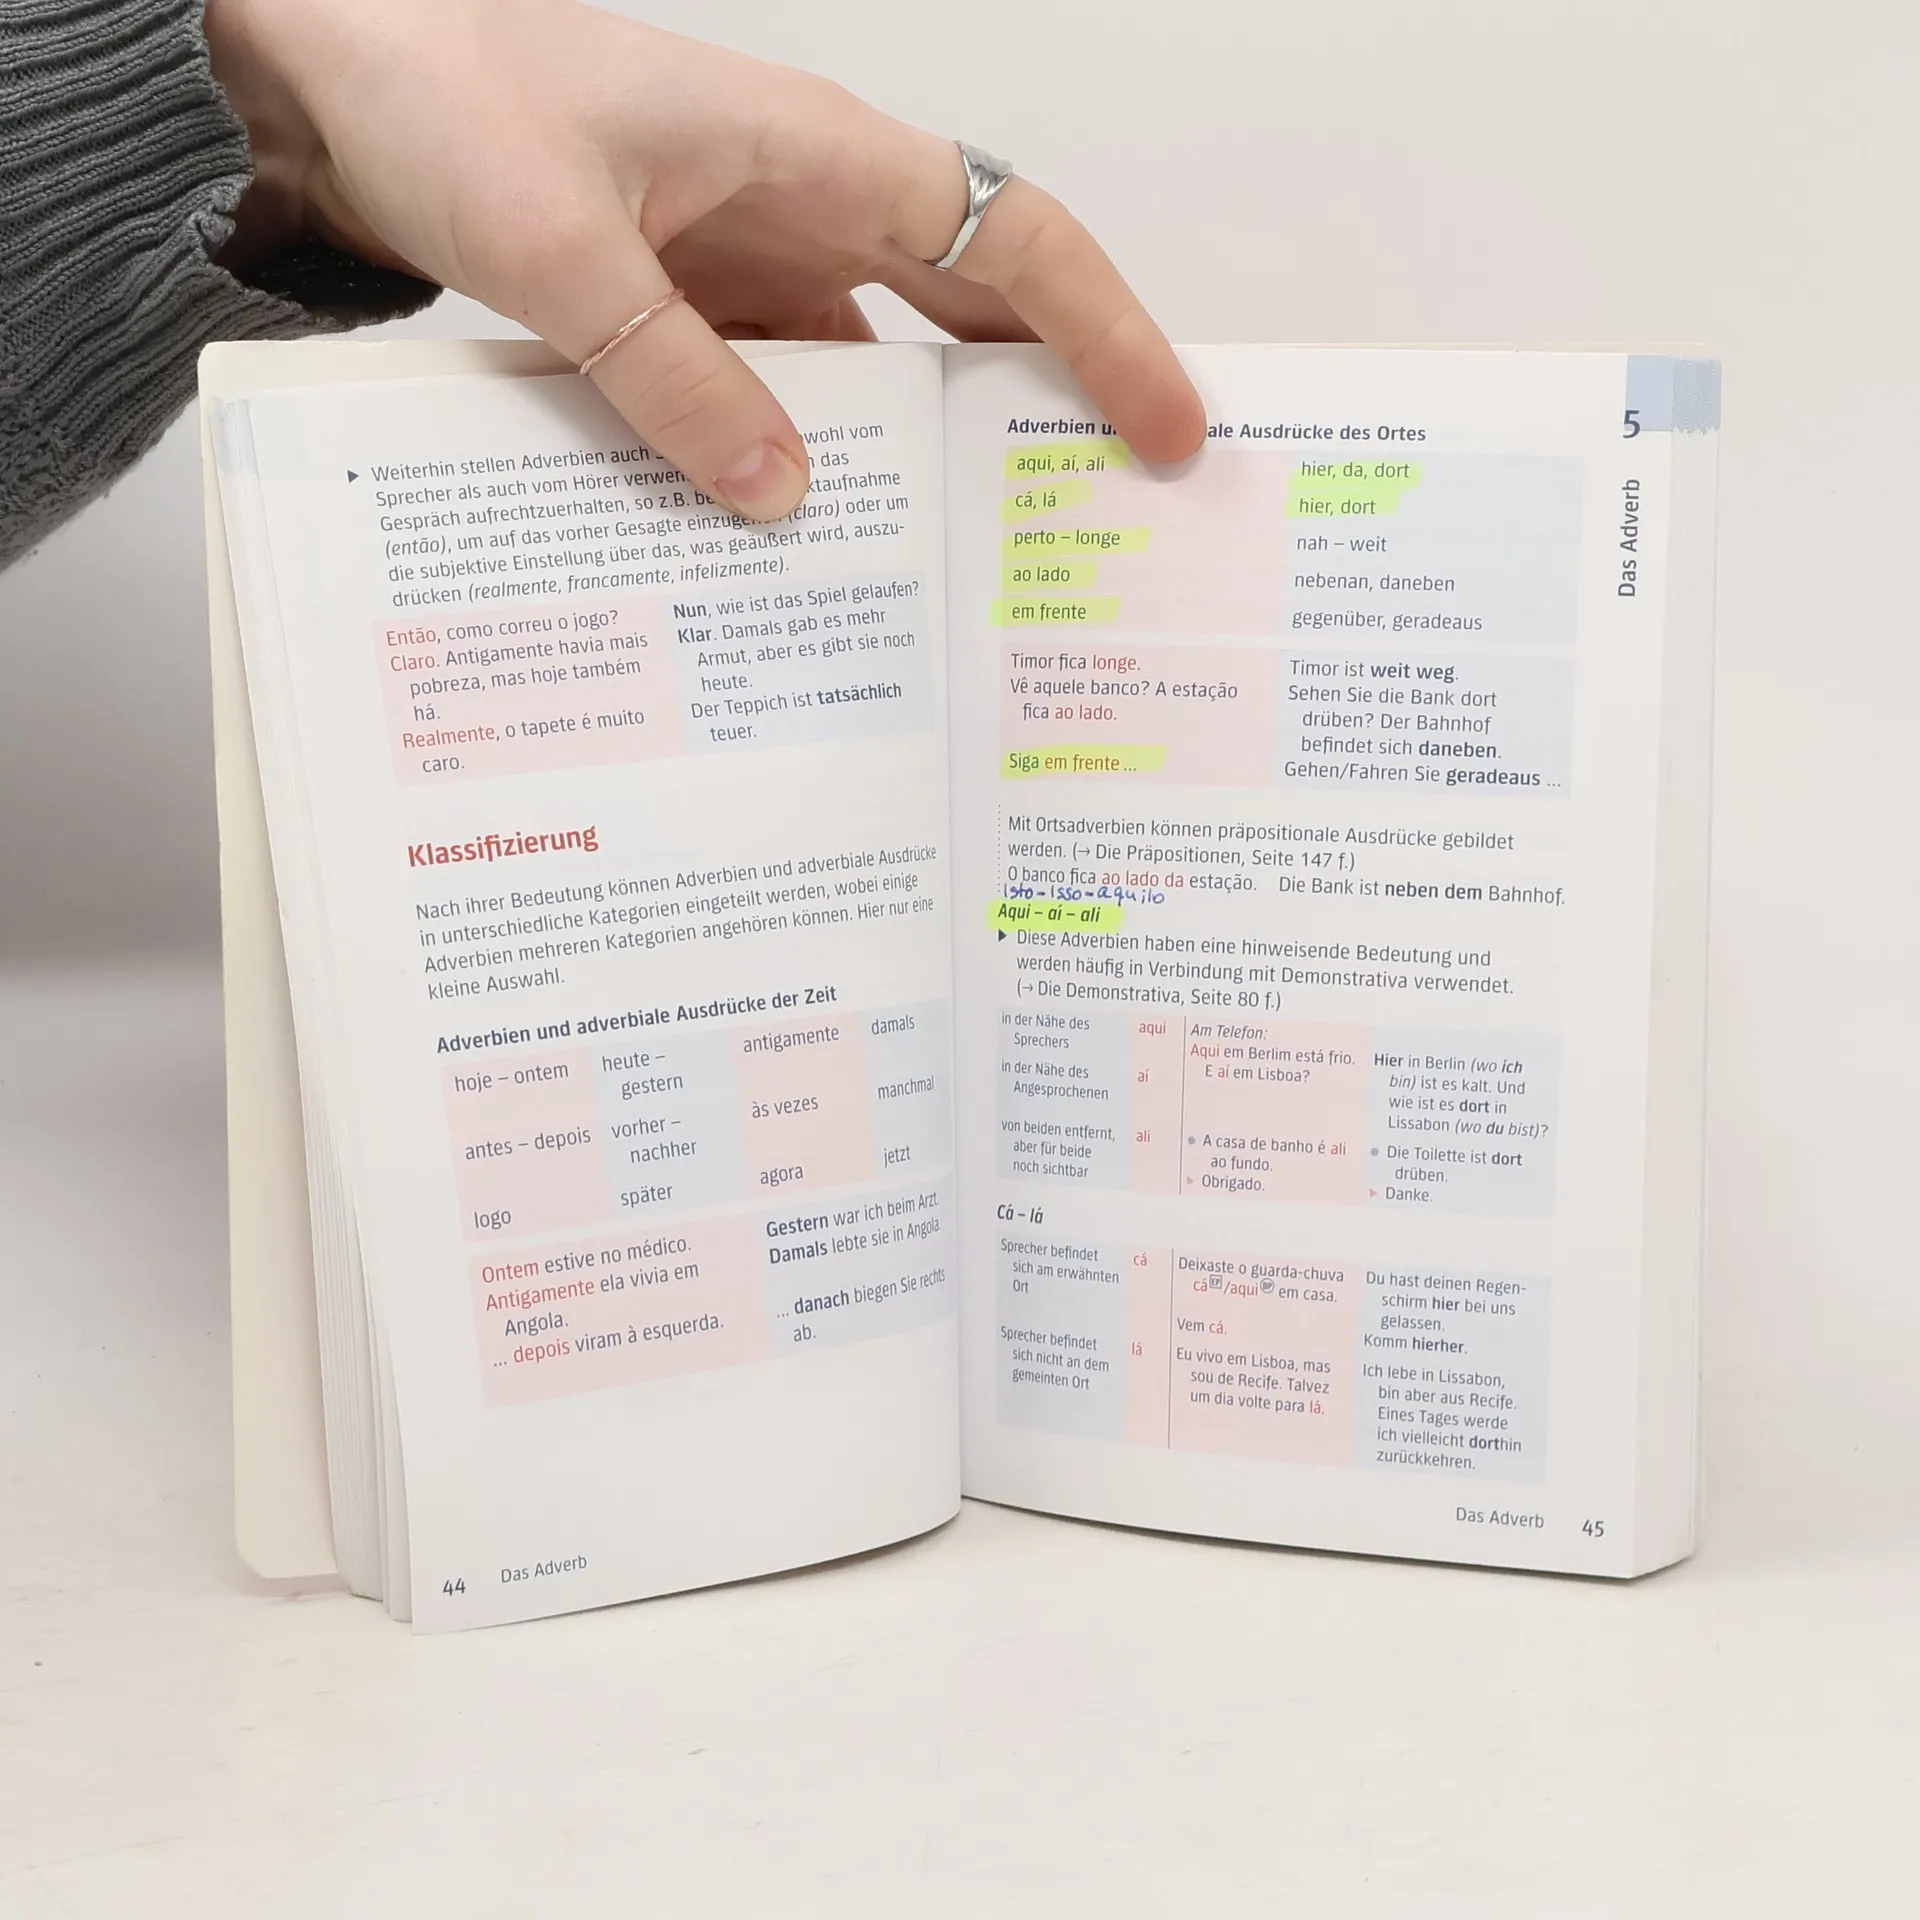 ▶ Weiterhin stellen Adverbien auch
wohl vom
Sprecher als auch vom Hörer
das
Gespräch aufrechtzuerhalten, so z.B.
(então), um auf das vorher Gesagte
(claro) oder um
die subjektive Einstellung über das, was geäußert wird, auszu-
drücken (realmente, francamente, infelizmente).
Então, como correu o jogo?
Claro. Antigamente havia mais
pobreza, mas hoje também
há.
Realmente, o tapete é muito
caro.
Nun, wie ist das Spiel gelaufen?
Klar. Damals gab es mehr
Armut, aber es gibt sie noch
heute.
Der Teppich ist tatsächlich
teuer.
Klassifizierung
Nach ihrer Bedeutung können Adverbien und adverbiale Ausdrücke
in unterschiedliche Kategorien eingeteilt werden, wobei einige
Adverbien mehreren Kategorien angehören können. Hier nur eine
kleine Auswahl.
Adverbien und adverbiale Ausdrücke der Zeit
hoje – ontem
heute –
gestern
antigamente
damals
antes – depois
vorher –
nachher
às vezes
manchmal
logo
später
agora
jetzt
Ontem estive no médico.
Antigamente ela vivia em
Angola.
... depois viram à esquerda.
Gestern war ich beim Arzt.
Damals lebte sie in Angola.
... danach biegen Sie rechts
ab.
44 Das Adverb
Adverbien
ale Ausdrücke des Ortes
aqui, aí, ali
hier, da, dort
cá, lá
hier, dort
perto – longe
nah – weit
ao lado
nebenan, daneben
em frente
gegenüber, geradeaus
Timor fica longe.
Vê aquele banco? A estação
fica ao lado.
Siga em frente ...
Timor ist weit weg.
Sehen Sie die Bank dort
drüben? Der Bahnhof
befindet sich daneben.
Gehen/Fahren Sie geradeaus ...
Mit Ortsadverbien können präpositionale Ausdrücke gebildet
werden. (→ Die Präpositionen, Seite 147 f.)
O banco fica ao lado da estação. Die Bank ist neben dem Bahnhof.
Isto – Isso – aquilo
Aqui – aí – ali
▶ Diese Adverbien haben eine hinweisende Bedeutung und
werden häufig in Verbindung mit Demonstrativa verwendet.
(→ Die Demonstrativa, Seite 80 f.)
in der Nähe des
Sprechers
aqui
Am Telefon:
Aqui em Berlim está frio.
E aí em Lisboa?
Hier in Berlin (wo ich
bin) ist es kalt. Und
wie ist es dort in
Lissabon (wo du bist)?
in der Nähe des
Angesprochenen
aí
von beiden entfernt,
aber für beide
noch sichtbar
ali
• A casa de banho é ali
ao fundo.
▸ Obrigado.
• Die Toilette ist dort
drüben.
▸ Danke.
Cá – lá
Sprecher befindet
sich am erwähnten
Ort
cá
Deixaste o guarda-chuva
cá EP/aqui BP em casa.
Vem cá.
Du hast deinen Regen-
schirm hier bei uns
gelassen.
Komm hierher.
Sprecher befindet
sich nicht an dem
gemeinten Ort
lá
Eu vivo em Lisboa, mas
sou de Recife. Talvez
um dia volte para lá.
Ich lebe in Lissabon,
bin aber aus Recife.
Eines Tages werde
ich vielleicht dorthin
zurückkehren.
Das Adverb 45
5
Das Adverb